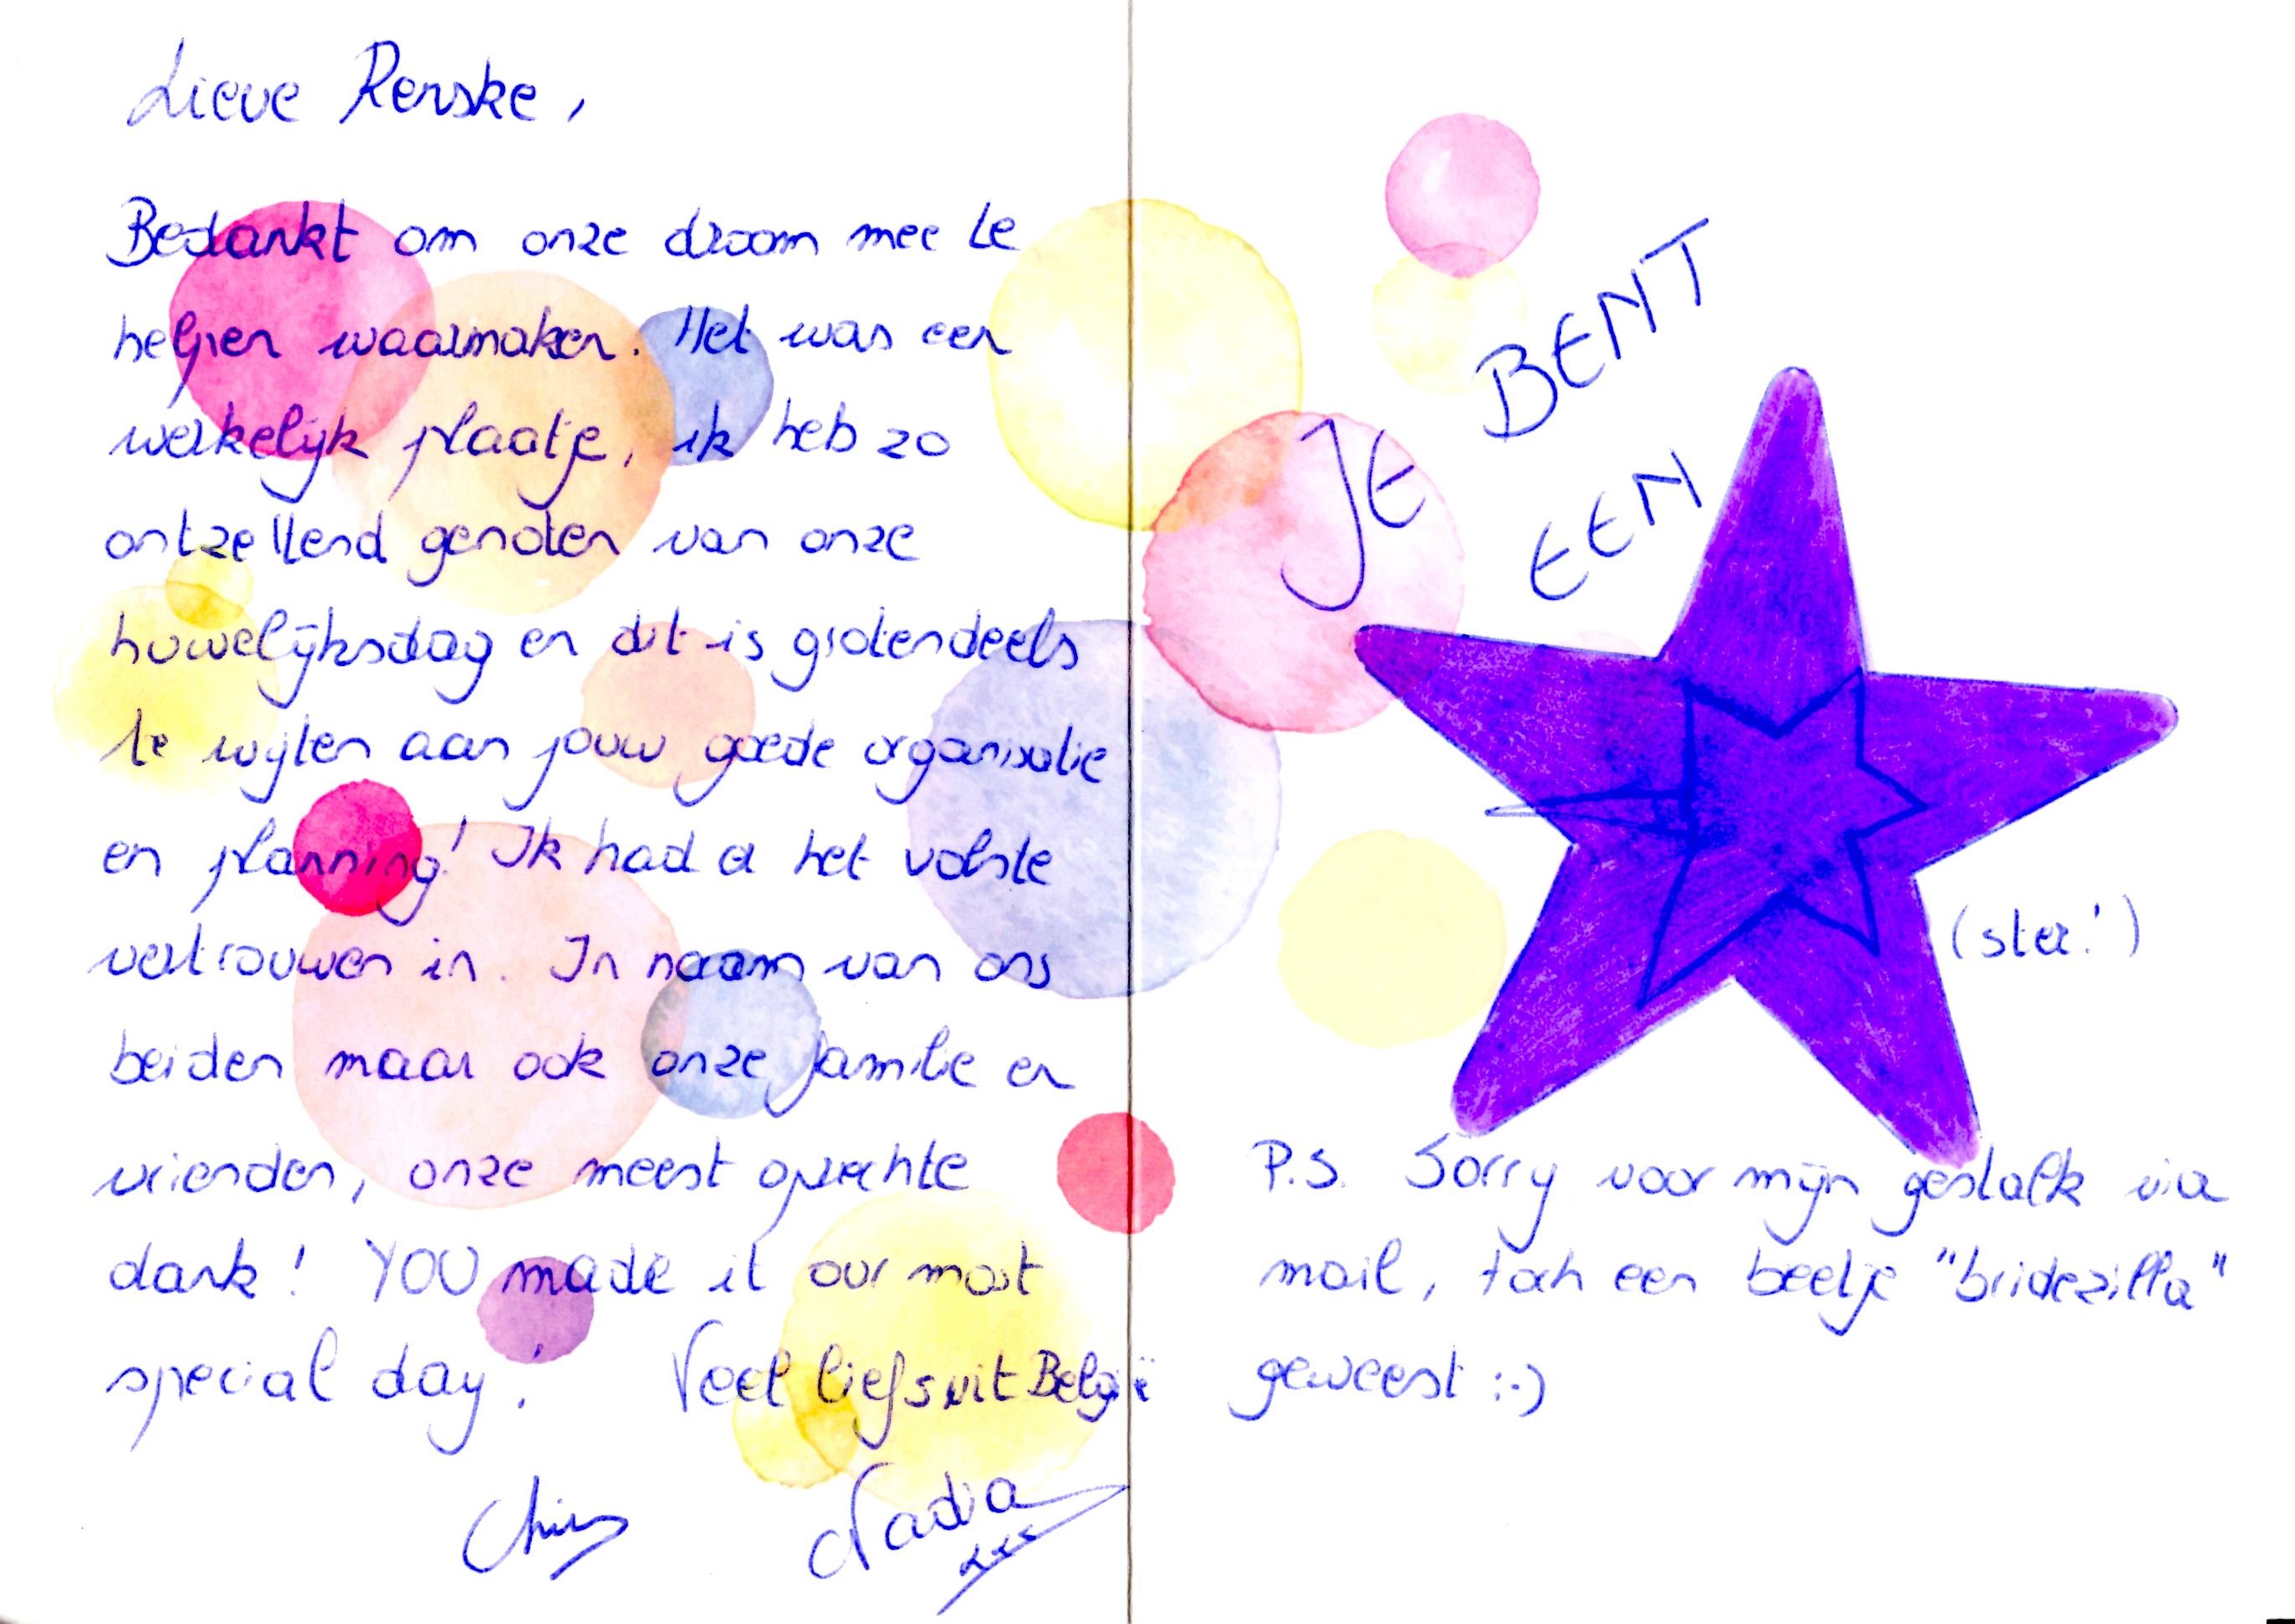 Lieve Renske,
Bedankt om onze droom mee te
helpen waarmaken. Het was een
werkelijk plaatje, ik heb zo
ontzettend genoten van onze
huwelijksdag en dit is grotendeels
te wijten aan jouw goede organisatie
en planning! Ik had er het volste
vertrouwen in. In naam van ons
beiden maar ook onze familie en
vrienden, onze meest oprechte
dank! YOU made it our most
special day! Veel liefs uit België
Chris Nadia
xxx
JE BENT
EEN
(ster!)
P.S. Sorry voor mijn gestalk via
mail, toch een beetje "bridezilla"
geweest :-)